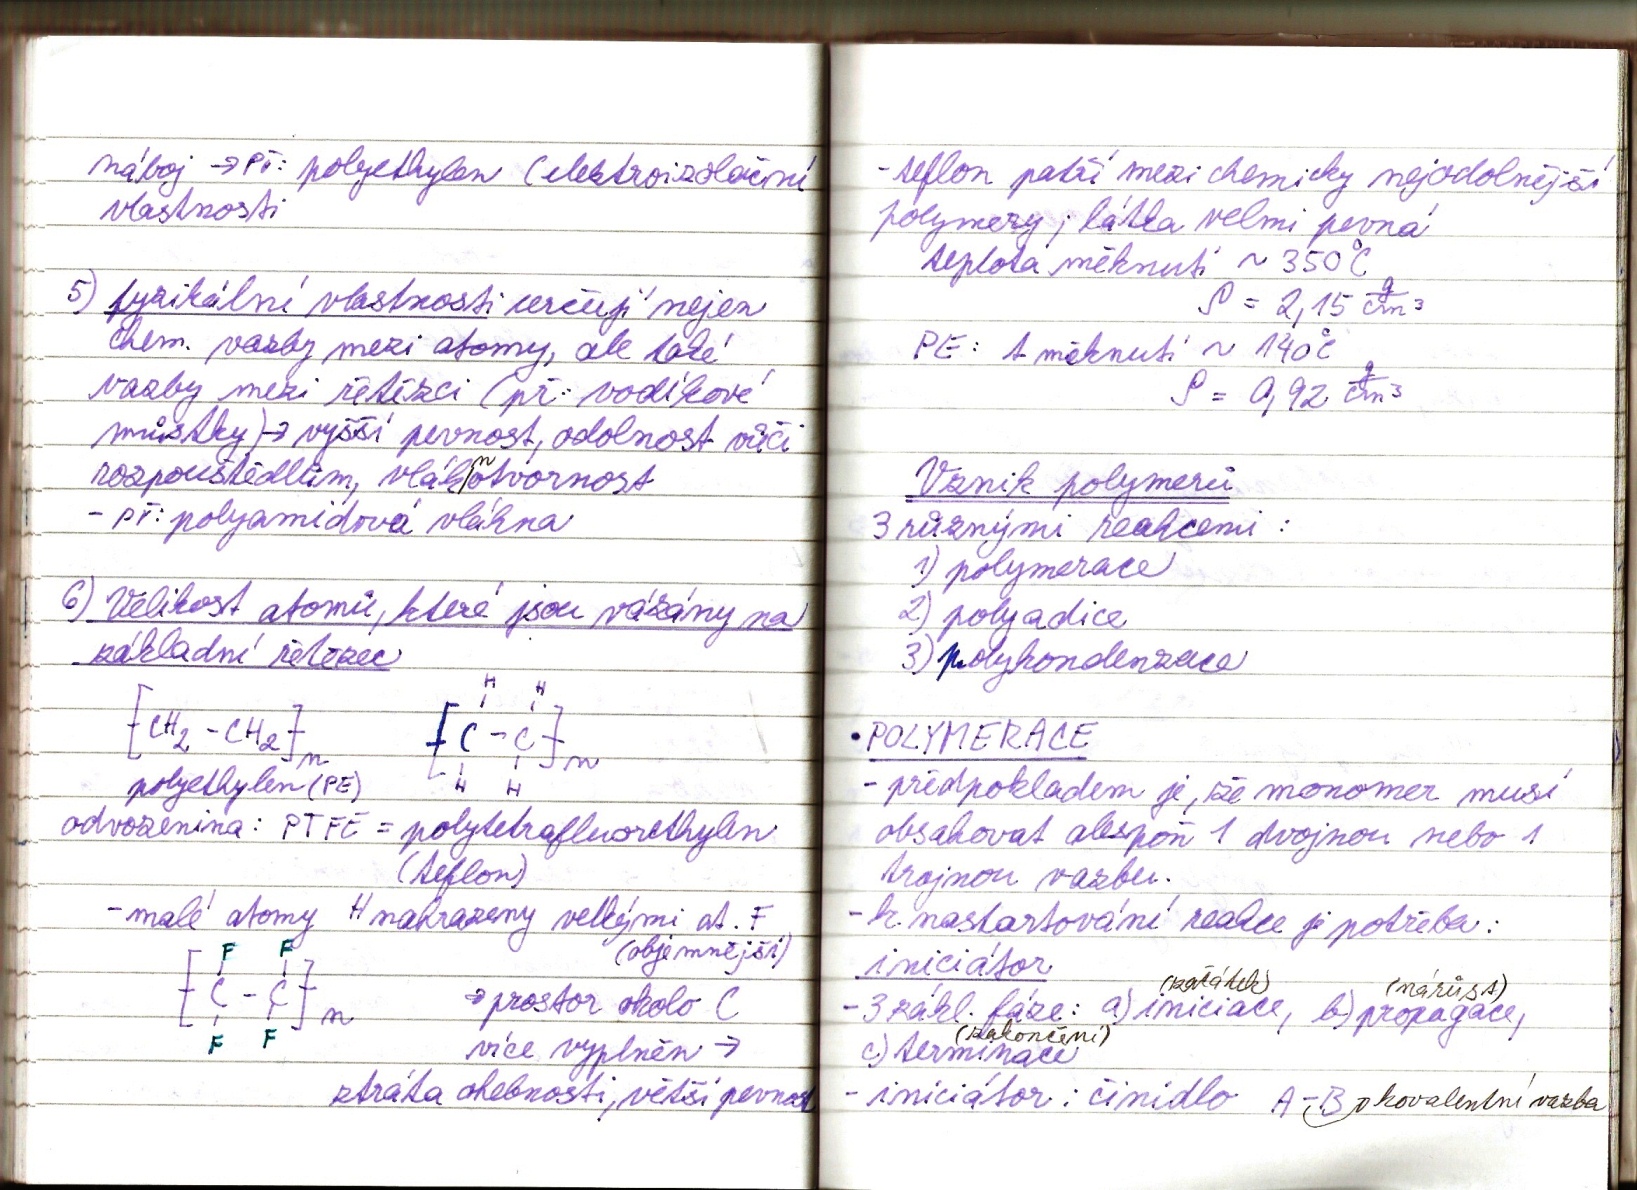 náboj → př: polyethylen (elektroizolační
vlastnosti
5) fyzikální vlastnosti určují nejen
chem. vazby mezi atomy, ale také
vazby mezi řetězci (př: vodíkové
můstky) → vyšší pevnost, odolnost vůči
rozpouštědlům, vláknotvornost
- př: polyamidová vlákna
6) Velikost atomů, které jsou vázány na
základní řetězec
[CH2 - CH2]n
H H
[C - C]n
H H
polyethylen (PE)
odvozenina: PTFE = polytetrafluorethylen
(teflon)
- malé atomy H nahrazeny velkými at. F
(objemnější)
F F
[C - C]n
F F
→ prostor okolo C
více vyplněn →
ztráta ohebnosti, větší pevnost
- teflon patří mezi chemicky nejodolnější
polymery; látka velmi pevná
teplota měknutí ~ 350°C
ρ = 2,15 g/cm3
PE: t měknutí ~ 140°C
ρ = 0,92 g/cm3
Vznik polymerů
3 různými reakcemi:
1) polymerace
2) polyadice
3) polykondenzace
• POLYMERACE
- předpokladem je, že monomer musí
obsahovat alespoň 1 dvojnou nebo 1
trojnou vazbu.
- k nastartování reakce je potřeba:
iniciátor
(začátek) (nárůst)
- 3 zákl. fáze: a) iniciace, b) propagace,
(zakončení)
c) terminace
- iniciátor: činidlo A-B kovalentní vazba